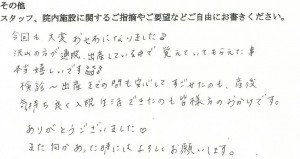 その他
スタッフ、院内施設に関するご指摘やご要望などご自由にお書きください。
今回も大変お世話になりました♪
沢山の方が通院、出産している中で覚えていてもらえた事
本当嬉しいです
検診〜出産までの間も安心してすごせたのも、産後
気持ち良く入院生活できたのも皆様のおかげです。
ありがとうございました♡
また何かあった時にはよろしくお願いします。